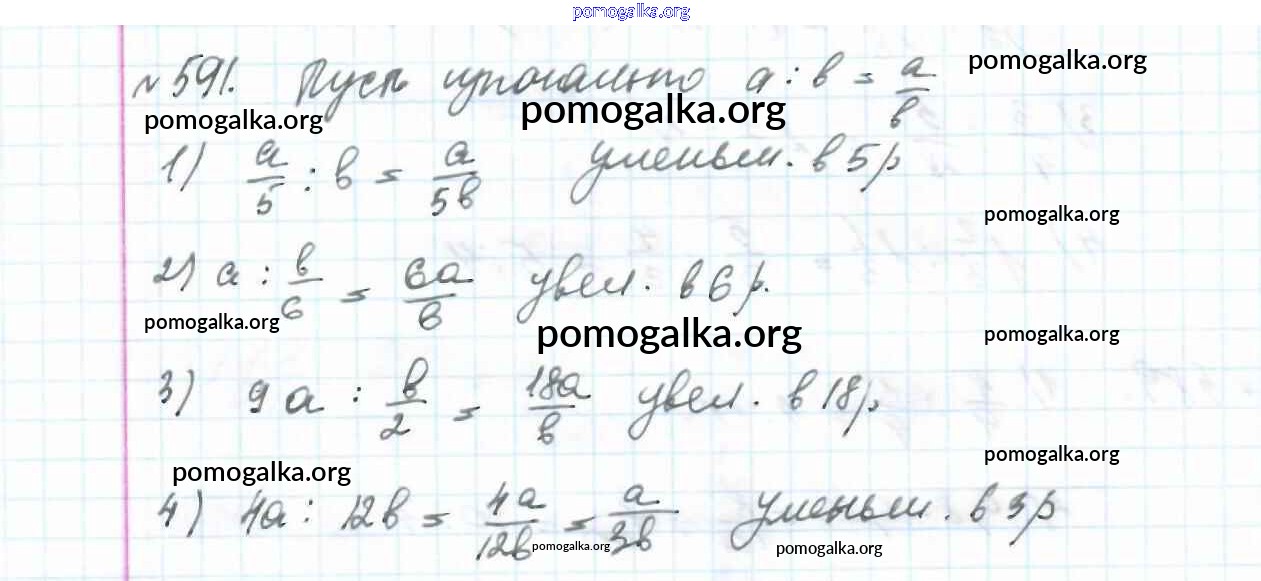 pomogalka.org
№591. Пусть изначально a : b = a/b
pomogalka.org
pomogalka.org
pomogalka.org
1) a/5 : b = a/5b уменьш. в 5 р
pomogalka.org
2) a : b/6 = 6a/b увел. в 6 р.
pomogalka.org
pomogalka.org
pomogalka.org
3) 9a : b/2 = 18a/b увел. в 18 р.
pomogalka.org
pomogalka.org
4) 4a : 12b = 4a/12b = a/3b уменьш. в 3 р
pomogalka.org
pomogalka.org